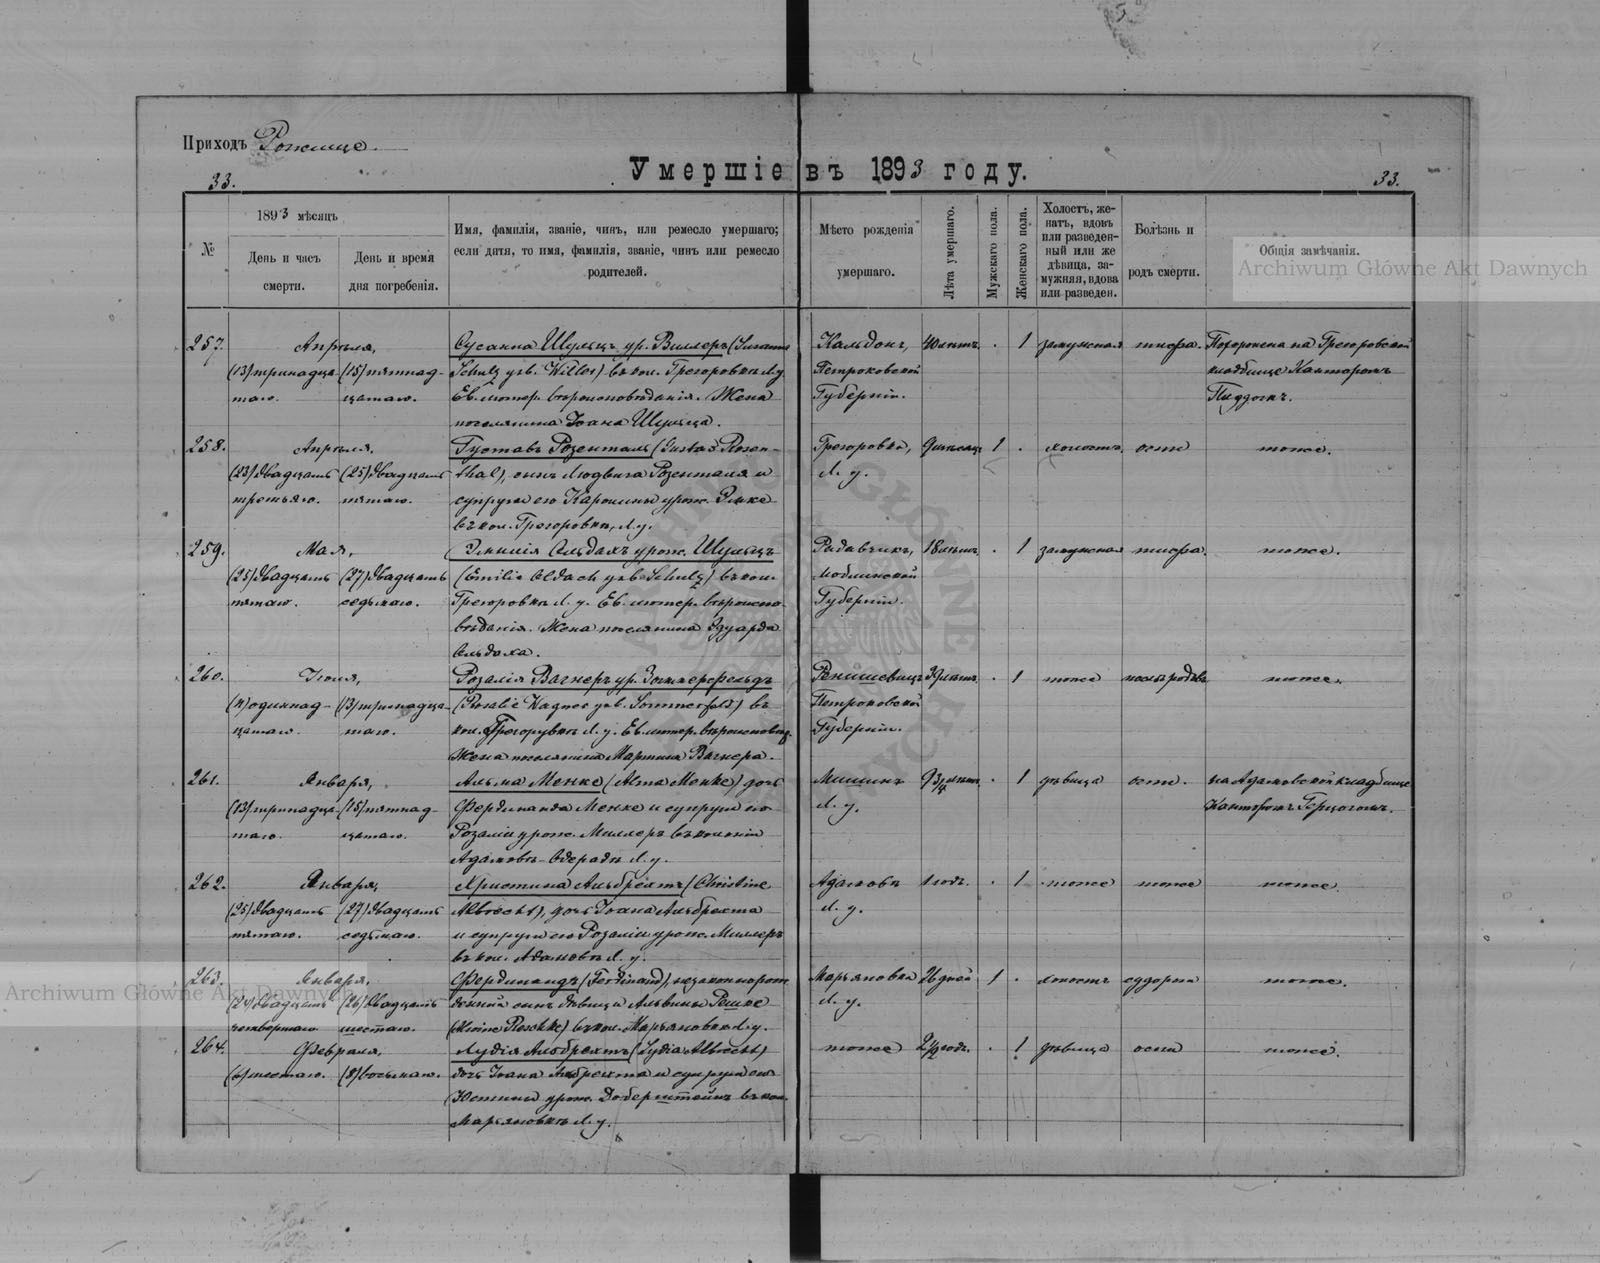 Приходъ Рожище.
Умершіе въ 1893 году.
33.
33.
№
1893 мѣсяцъ
День и часъ
смерти.
День и время
дня погребенія.
Имя, фамилія, званіе, чинъ, или ремесло умершаго;
если дитя, то имя, фамилія, званіе, чинъ или ремесло
родителей.
Мѣсто рожденія
умершаго.
Лѣта умершаго.
Мужскаго пола.
Женскаго пола.
Холостъ, же-
натъ, вдовъ
или разведен-
ный или же
дѣвица, за-
мужняя, вдова
или разведен.
Болѣзнь и
родъ смерти.
Общія замѣчанія.
Archiwum Główne Akt Dawnych
257.
Апрѣля,
(13) тринадца-
таго.
(15) пятнад-
цатаго.
Сусанна Шульцъ ур. Виллеръ (Susanna
Schulz geb. Willer) въ кол. Грегоровкѣ Л.у.
Ев. лютер. вѣроисповѣданія. Жена
поселянина Іоана Шульца.
Петроковской
Губерніи.
40 лѣтъ
1
замужняя
тифа.
Похоронена на Грегоровской
кладбище Канторомъ
258.
Апрѣля,
(23) двадцать
третьяго.
(25) двадцать
пятаго.
Густавъ Розенталь (Gustav Rosen-
thal), сынъ Людвига Розенталя и
супруги его Каролины урож.
въ кол. Грегоровкѣ, Л.у.
Грегоровка,
Л. у.
1
холостъ
оспы
тоже.
259.
Мая,
(25) двадцать
пятаго.
(27) двадцать
седьмаго.
Эмилія Ольдахъ урож. Шульцъ
(Emilie Oldach geb. Schulz) въ кол.
Грегоровкѣ Л. у. Ев. лютер. вѣроиспо-
вѣданія. Жена поселянина Эдуарда
Ольдаха.
Губерніи.
18 лѣтъ
1
замужняя
тифа.
тоже.
260.
(11) одиннад-
цатаго.
(13) тринадца-
таго.
Розалія Вагнеръ ур. Зоммерфельдъ
(Rosalie Wagner geb. Sommerfeld) въ
кол. Грегоровкѣ Л. у. Ев. лютер. вѣроисповѣд.
Жена поселянина Мартина Вагнера.
Петроковской
Губерніи.
39 лѣтъ
1
тоже
тоже.
261.
Января,
(13) тринадца-
таго.
(15) пятнад-
цатаго.
Альма Менке (Alma Menke) дочь
Фердинанда Менке и супруги его
Розаліи урож. Миллеръ въ колоніи
Адамовъ- Л. у.
Л. у.
9 3/4 лѣтъ
1
дѣвица
оспы.
на Адамовской кладбище
Канторомъ Герцогомъ.
262.
Января,
(25) двадцать
пятаго.
(27) двадцать
седьмаго.
Христина Альбрехтъ (Christine
Albrecht), дочь Іоана Альбрехта
и супруги его Розаліи урож. Миллеръ
въ кол. Адамовъ Л. у.
Адамовъ
Л. у.
1 годъ.
1
тоже
тоже
тоже.
263.
Января,
(24) двадцать
четвертаго
(26) двадцать
шестаго.
Фердинандъ (Ferdinand), незаконнорож
денный сынъ дѣвицы Альвины Решке
(Alvine Reschke) въ кол. Марьяновка Л. у.
Марьяновка
Л. у.
26 дней
1
холостъ
судорги
тоже.
Archiwum Główne Akt Dawnych
264.
Февраля,
(6) шестаго.
(8) восьмаго.
Лудія Альбрехтъ (Lydia Albrecht)
дочь Іоана Альбрехта и супруги его
Юстины урож. Доберштейнъ въ кол.
Марьяновкѣ Л. у.
тоже
2 1/2 годъ.
1
дѣвица
оспы
тоже.